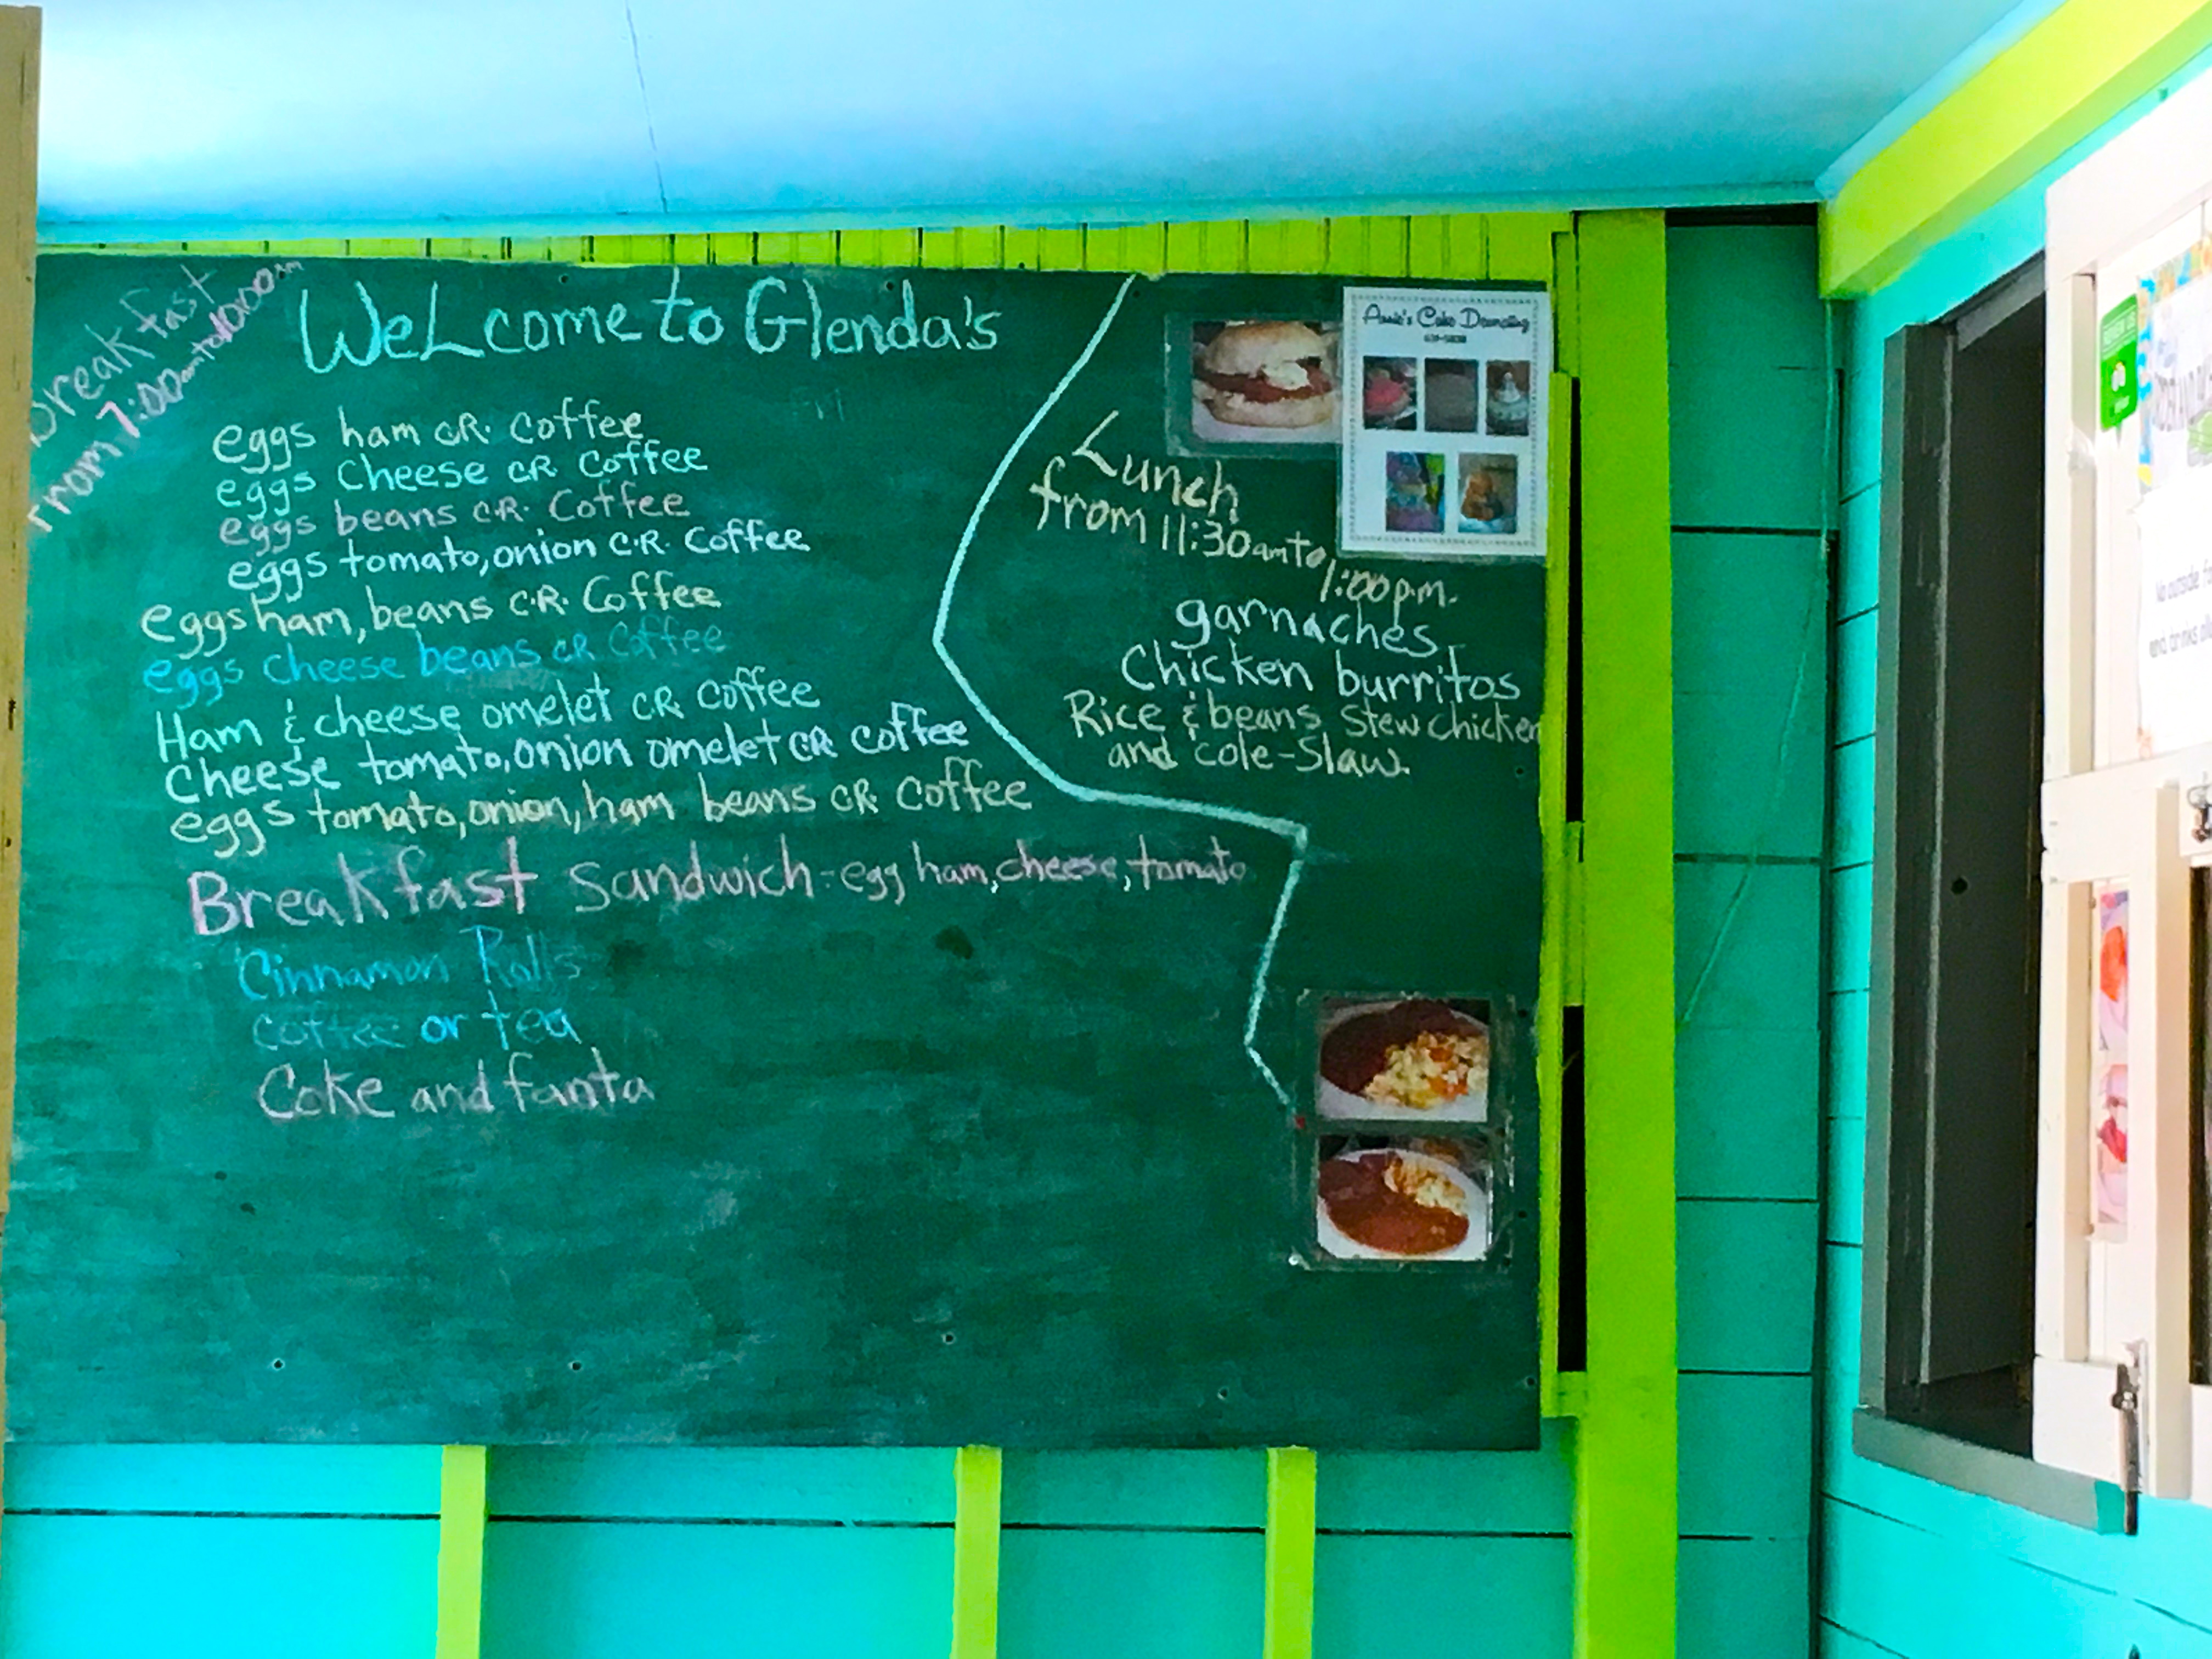 Breakfast
From 7:00am to 10:00am
WeLcome to Glenda's
eggs ham CR. Coffee
eggs Cheese CR Coffee
eggs beans C.R. Coffee
eggs tomato, onion C.R. Coffee
eggs ham, beans C.R. Coffee
eggs cheese beans CR Coffee
Ham & cheese omelet CR Coffee
Cheese tomato, onion omelet CR coffee
eggs tomato, onion, ham beans CR Coffee
Breakfast Sandwich - egg ham, cheese, tomato
Cinnamon Rolls
coffee or tea
Coke and fanta
Lunch
from 11:30am to
1:00p.m.
garnaches
Chicken burritos
Rice & beans Stew chicken
and cole-Slaw.
Annie's Cake Decorating
No outside
and drinks